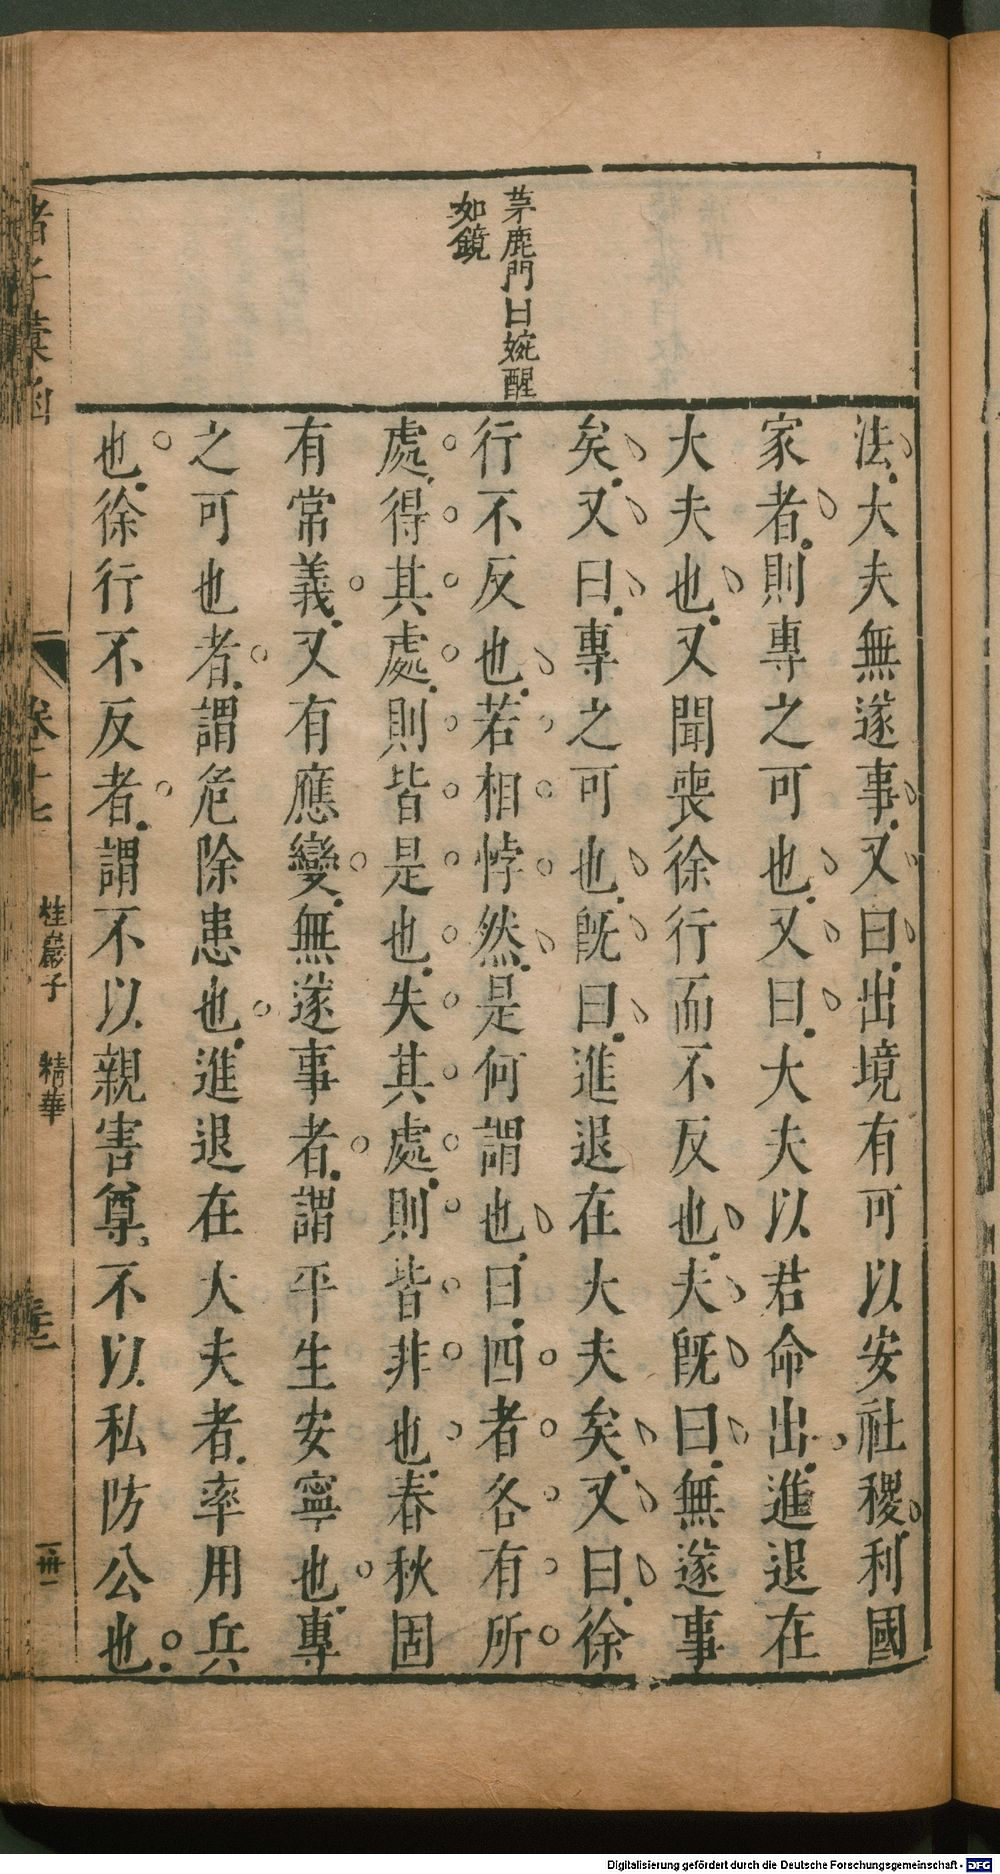 茅鹿門曰婉醒
如鏡
法大夫無遂事又曰出境有可以安社稷利國
家者則專之可也又曰大夫以君命出進退在
大夫也又聞喪徐行而不反也夫既曰無遂事
矣又曰專之可也既曰進退在大夫矣又曰徐
行不反也若相悖然是何謂也曰四者各有所
處得其處則皆是也失其處則皆非也春秋固
有常義又有應變無遂事者謂平生安寧也專
之可也者謂危除患也進退在大夫者率用兵
也徐行不反者謂不以親害尊不以私防公也
諸子彙函
卷十七
桂巖子
精華
Digitalisierung gefördert durch die Deutsche Forschungsgemeinschaft - DFG